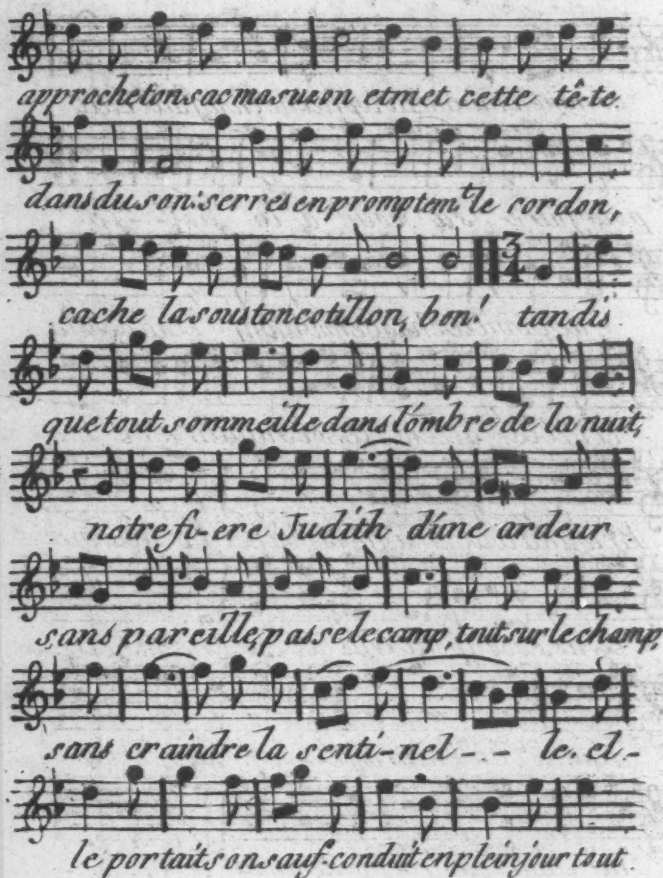 approche ton sac ma suzon et met cette tê-te
dans du son: serres en promptem.t le cordon,
3
4
cache la sous ton cotillon, bon! tandis
que tout sommeille dans l'ombre de la nuit,
notre fi-ere Judith d'une ardeur
sans pareille, passe le camp, tout sur le champ,
sans craindre la senti-nel - - le. el-
le portait son sauf-conduit en plein jour tout